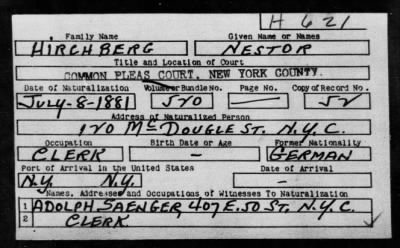 H 621
Family Name Given Name or Names
HIRCHBERG NESTOR
Title and Location of Court
COMMON PLEAS COURT, NEW YORK COUNTY.
Date of Naturalization Volume or Bundle No. Page No. Copy of Record No.
JULY-8-1881 570 — 52
Address of Naturalized Person
120 McDOUGLE ST. N.Y.C.
Occupation Birth Date or Age Former Nationality
CLERK — GERMAN
Port of Arrival in the United States Date of Arrival
N.Y. N.Y. —
Names, Addresses and Occupations of Witnesses To Naturalization
1 ADOLPH SAENGER, 407 E. 50 ST. N.Y.C.
2 CLERK